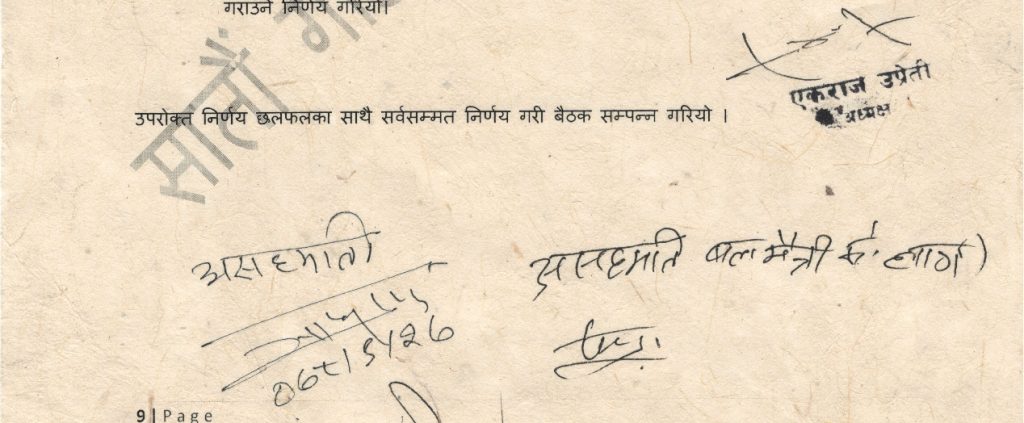 गराउने निर्णय गरियो।
एकराज उप्रेती
अध्यक्ष
उपरोक्त निर्णय छलफलका साथै सर्वसम्मत निर्णय गरी बैठक सम्पन्न गरियो ।
सालौं
असहमती
असहमति बालमैत्री
9 | Page